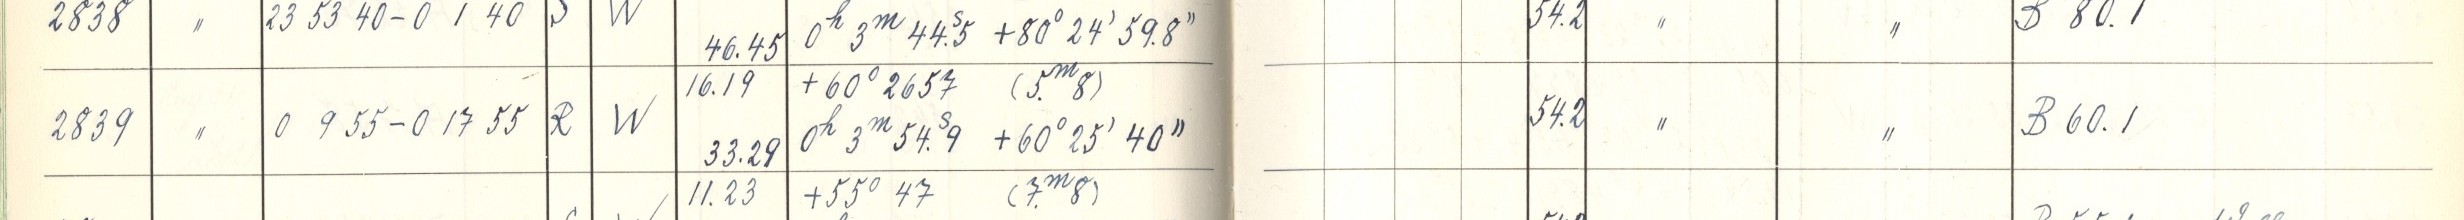 2838 " 23 53 40 – 0 1 40 S W 46.45 0ʰ 3ᵐ 44.ˢ5 +80° 24' 59.8" 54.2 " " B 80.1
16.19 +60° 2657 (5.ᵐ8)
2839 " 0 9 55 – 0 17 55 R W 33.29 0ʰ 3ᵐ 54.ˢ9 +60° 25' 40" 54.2 " " B 60.1
11.23 +55° 47 (7.ᵐ8)